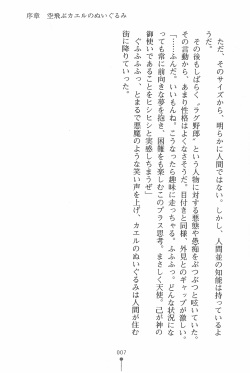 序章　空飛ぶカエルのぬいぐるみ
ただ、そのサイズから、明らかに人間ではない。しかし、人間並の知能は持っているよ
うだ。
その後もしばらく、〝ラグ野郎〟という人物に対する悪態や愚痴をぶつぶつと呟いていた。
その言動から、あまり性格はよくなさそうだ。目付きと同様、外見とのギャップが激しい。
「……ふんだ。いいもんね。こうなったら趣味に走っちゃる。ふふふっ。どんな状況にな
っても常に前向きな夢を抱き、困難をも楽しむこのプラス思考。まさしく天使。己が神の
御使いであることをヒシヒシと実感しちまうぜ」
ぐふふふふっ、とまるで悪魔のような笑い声を上げ、カエルのぬいぐるみは人間が住む
街に降りていった。
007